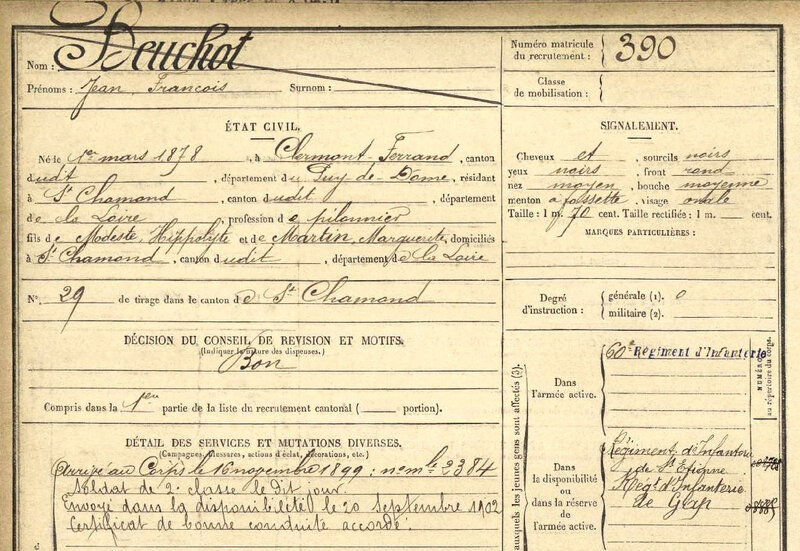 Nom : Beuchot
Prénoms : Jean François Surnom :
Numéro matricule du recrutement : 390
Classe de mobilisation :
ÉTAT CIVIL.
Né le 1er mars 1878, à Clermont-Ferrand, canton
dudit, département du Puy-de-Dôme, résidant
à St Chamond, canton dudit, département
de la Loire, profession de pilonnier
fils de Modeste, Hippolyte et de Martin, Marguerite, domiciliés
à St Chamond, canton dudit, département de la Loire
N° 29 de tirage dans le canton de St Chamond
SIGNALEMENT.
Cheveux et, sourcils noirs
yeux noirs, front rond
nez moyen, bouche moyenne
menton à fossette, visage ovale
Taille : 1 m. 70 cent. Taille rectifiée : 1 m. cent.
MARQUES PARTICULIÈRES :
Degré d'instruction : générale (1). 0
militaire (2).
DÉCISION DU CONSEIL DE REVISION ET MOTIFS.
(Indiquer la nature des dispenses.)
Bon
Compris dans la 1re partie de la liste du recrutement cantonal ( portion).
DÉTAIL DES SERVICES ET MUTATIONS DIVERSES.
(Campagnes, blessures, actions d'éclat, décorations, etc.)
Arrivé au Corps le 16 novembre 1899 : n° mle 2384
Soldat de 2e classe le dit jour.
Envoyé dans la disponibilité le 20 septembre 1902
Certificat de bonne conduite accordé.
auxquels les jeunes gens sont affectés (3).
NUMÉRO
au répertoire du corps.
Dans l'armée active.
60e Régiment d'Infanterie
Dans la disponibilité ou dans la réserve de l'armée active.
Régiment d'Infanterie
de St Etienne
Régt d'Infanterie
de Gap